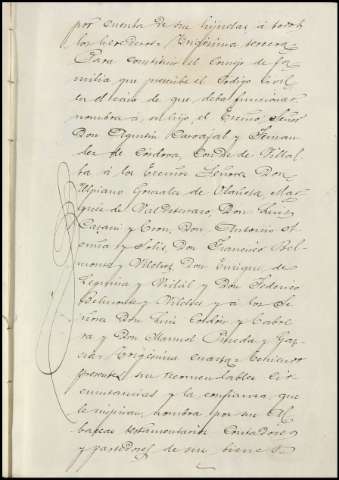 por cuenta de sus hijuelas, a todos
los herederos. Vigésima tercera
Para constituir el Consejo de fa-
milia que prescribe el Codigo Civil
en el caso de que deba funcionar
nombra a su hijo, el Excmo. Señor
Don Agustin Carvajal y Fernan-
dez de Córdova, Conde de Villal-
ba á los Excmos Señores Don
Ulpiano Gonzalez de Olañeta, Mar-
qués de Valdeterrazo, Don Luis
y Don Antonio
y Solis, Don Francisco Bel-
monte y Vilches, Don Enrique de
y Vidal y Don Federico
Belmonte y Vilches y a los Se-
ñores Don Luis Cordón y Cabre-
ra y Don Manuel Pineda y Gar-
cia. Vigésima cuarta. Teniendo
presentes sus recomendables cir-
cunstancias y la confianza que
le inspiran, nombra por sus Al-
baceas testamentarios Contadores
y partidores de sus bienes